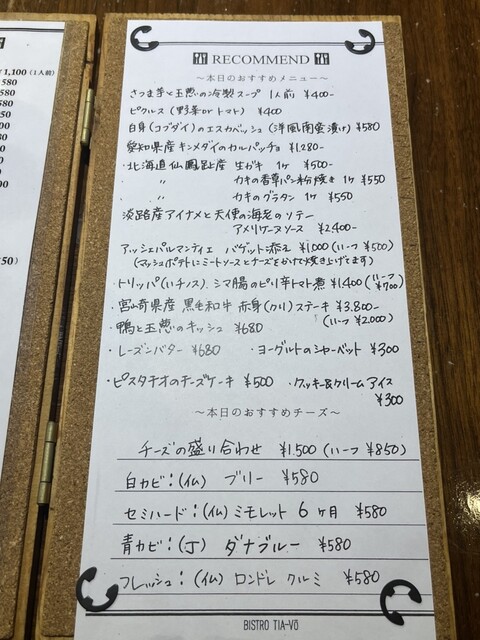 ¥1,100(1人前)
580
580
580
580
580
580
580
580
50)
RECOMMEND
～本日のおすすめメニュー～
さつま芋と玉葱の冷製スープ 1人前 ¥400-
ピクルス (野菜orトマト) ¥400
白身(コブダイ)のエスカベッシュ(洋風南蛮漬け) ¥580
愛知県産キンメダイのカルパッチョ ¥1,280-
・北海道仙鳳趾産 生ガキ 1ケ ¥500-
〃 〃 カキの香草パン粉焼き 1ケ ¥550
〃 〃 カキのグラタン 1ケ ¥550
淡路産アイナメと天使の海老のソテー
アメリケーヌソース ¥2,400-
アッシェパルマンティエ バゲット添え ¥1,000 (ハーフ ¥500)
(マッシュポテトにミートソースとチーズをかけて焼き上げてます)
・トリッパ(ハチノス)、シマ腸のピリ辛トマト煮 ¥1,400 (ハーフ ¥700)
・宮崎県産 黒毛和牛 赤身(クリ)ステーキ ¥3,800-
(ハーフ ¥2,000)
・鴨と玉葱のキッシュ ¥680
・レーズンバター ¥680 ・ヨーグルトのシャーベット ¥300
・ピスタチオのチーズケーキ ¥500 ・クッキー&クリームアイス
¥300
～本日のおすすめチーズ～
チーズの盛り合わせ ¥1,500 (ハーフ ¥850)
白カビ:(仏) ブリー ¥580
セミハード:(仏) ミモレット 6ヶ月 ¥580
青カビ:(丁) ダナブルー ¥580
フレッシュ:(仏) ロンドレ クルミ ¥580
BISTRO TIA-VŌ